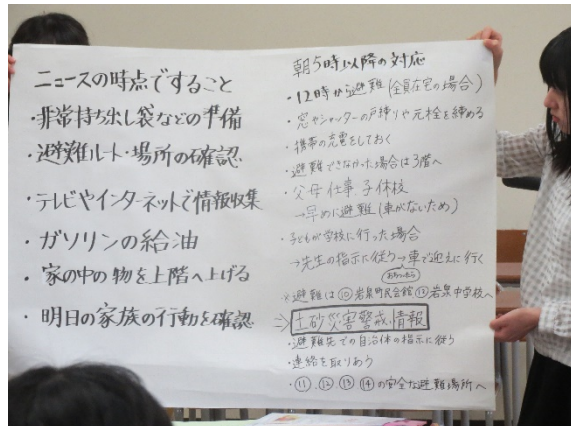 ニュースの時点ですること
・非常持ち出し袋などの準備
・避難ルート・場所の確認
・テレビやインターネットで情報収集
・ガソリンの給油
・家の中の物を上階へ上げる
・明日の家族の行動を確認
朝5時以降の対応
・12時から避難(全員在宅の場合)
・窓やシャッターの戸締りや元栓を締める
・携帯の充電をしておく
・避難できなかった場合は3階へ
・父母仕事、子休校
→早めに避難(車がないため)
・子どもが学校に行った場合
→先生の指示に従う→車で迎えに行く
おわったら
※避難は⑩岩泉町民会館⑬岩泉中学校へ
⇒土砂災害警戒情報
・避難先での自治体の指示に従う
・連絡を取りあう
・⑪、⑫、⑬、⑭の安全な避難場所へ